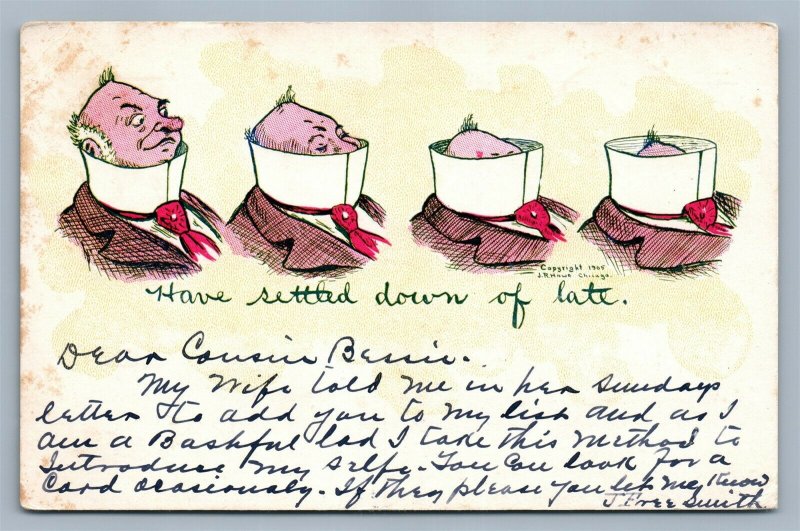 Copyright 1905
J.R. Howe Chicago
Have settled down of late.
Dear Cousin Bessie.
My Wife told me in her Sundays
letter to add you to my list and as I
am a Bashful lad I take this method to
Introduce my selfe. You Can look for a
Card Ocasiously. If they please you let me know
J. Free Smith